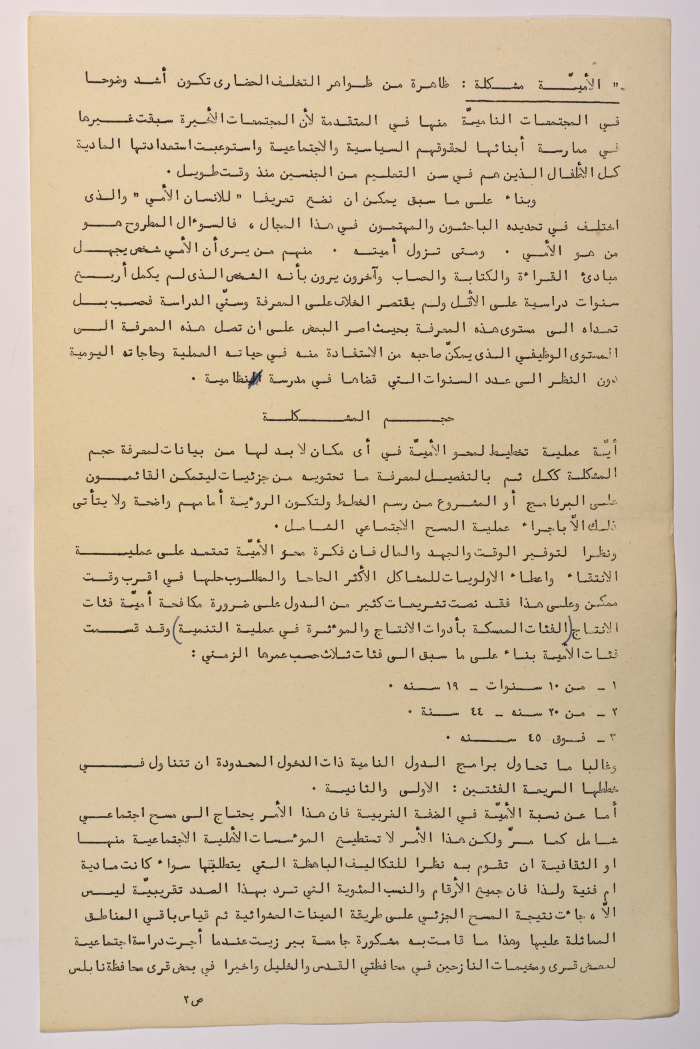 " الأميّة مشكلة : ظاهرة من ظواهر التخلف الحضارى تكون أشد وضوحا
في المجتمعات الناميّة منها في المتقدمة لأن المجتمعات الأخيرة سبقت غيرها
في ممارسة أبنائها لحقوقهم السياسية والاجتماعية واستوعبت استعدادتها المادية
كل الأطفال الذين هم في سن التعليم من الجنسين منذ وقت طويل .
وبناء على ما سبق يمكن ان نضع تعريفا " للانسان الأمي " والذى
اختلف في تحديده الباحثون والمهتمون في هذا المجال ، فالسوءال المطروح هو
من هو الأمي . ومتى تزول أميته . منهم من يرى أن الأمي شخص يجهل
مبادئ القراءة والكتابة والحساب وآخرون يرون بأنه الشخص الذى لم يكمل أربع
سنوات دراسية على الأقل ولم يقتصر الخلاف على المعرفة وسنّي الدراسة فحسب بل
تعداه الى مستوى هذه المعرفة بحيث اصر البعض على ان تصل هذه المعرفة الى
المستوى الوظيفي الذى يمكنّ صاحبه من الاستفادة منه في حياته العملية وحاجاته اليومية
دون النظر الى عدد السنوات التي قضاها في مدرسة نظامية .
حجم المشكلة
أيّة عملية تخطيط لمحو الأميّة في أى مكان لا بد لها من بيانات لمعرفة حجم
المشكلة ككل ثم بالتفصيل لمعرفة ما تحتويه من جزئيات ليتمكن القائمون
على البرنامج أو المشروع من رسم الخطط ولتكون الروءية أمامهم واضحة ولا يتأتى
ذلك الاّ باجراء عملية المسح الاجتماعي الشامل .
ونظرا لتوفير الوقت والجهد والمال فان فكرة محو الأميّة تعتمد على عملية
الانتقاء واعطاء الاولويات للمشاكل الأكثر الحاحا والمطلوب حلها في اقرب وقت
ممكن وعلى هذا فقد نصت تشريعات كثير من الدول على ضرورة مكافحة أميّة فئات
الانتاج (الفئات الممسكة بأدوات الانتاج والموءثرة في عملية التنمية) وقد قسمت
فئات الأمية بناء على ما سبق الى فئات ثلاث حسب عمرها الزمني :
١ ـ من ١٠ سنوات ـ ١٩ سنه .
٢ ـ من ٢٠ سنه ـ ٤٤ سنة .
٣ ـ فوق ٤٥ سنه .
وغالبا ما تحاول برامج الدول النامية ذات الدخول المحدودة ان تتناول في
خططها السريعة الفئتين : الاولى والثانية .
أما عن نسبة الأميّة في الضفة الغربية فان هذا الأمر يحتاج الى مسح اجتماعي
شامل كما مرّ ولكن هذا الأمر لا تستطيع الموءسسات الأهلية الاجتماعية منها
او الثقافية ان تقوم به نظرا للتكاليف الباهظة التي يتطلبها سواء كانت مادية
ام فنية ولذا فان جميع الأرقام والنسب المئوية التي ترد بهذا الصدد تقريبيّة ليس
الاّ ، جاءت نتيجة المسح الجزئي على طريقة العينات العشوائية ثم قياس باقي المناطق
المماثلة عليها وهذا ما قامت به مشكورة جامعة بير زيت عندما أجرت دراسة اجتماعية
لبعض قرى ومخيمات النازحين في محافظتي القدس والخليل واخيرا في بعض قرى محافظة نابلس
ص٢